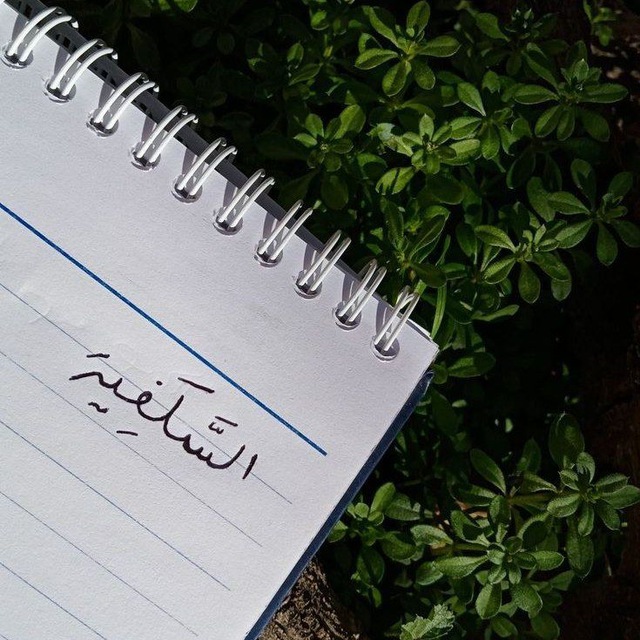 السَّلَفِية